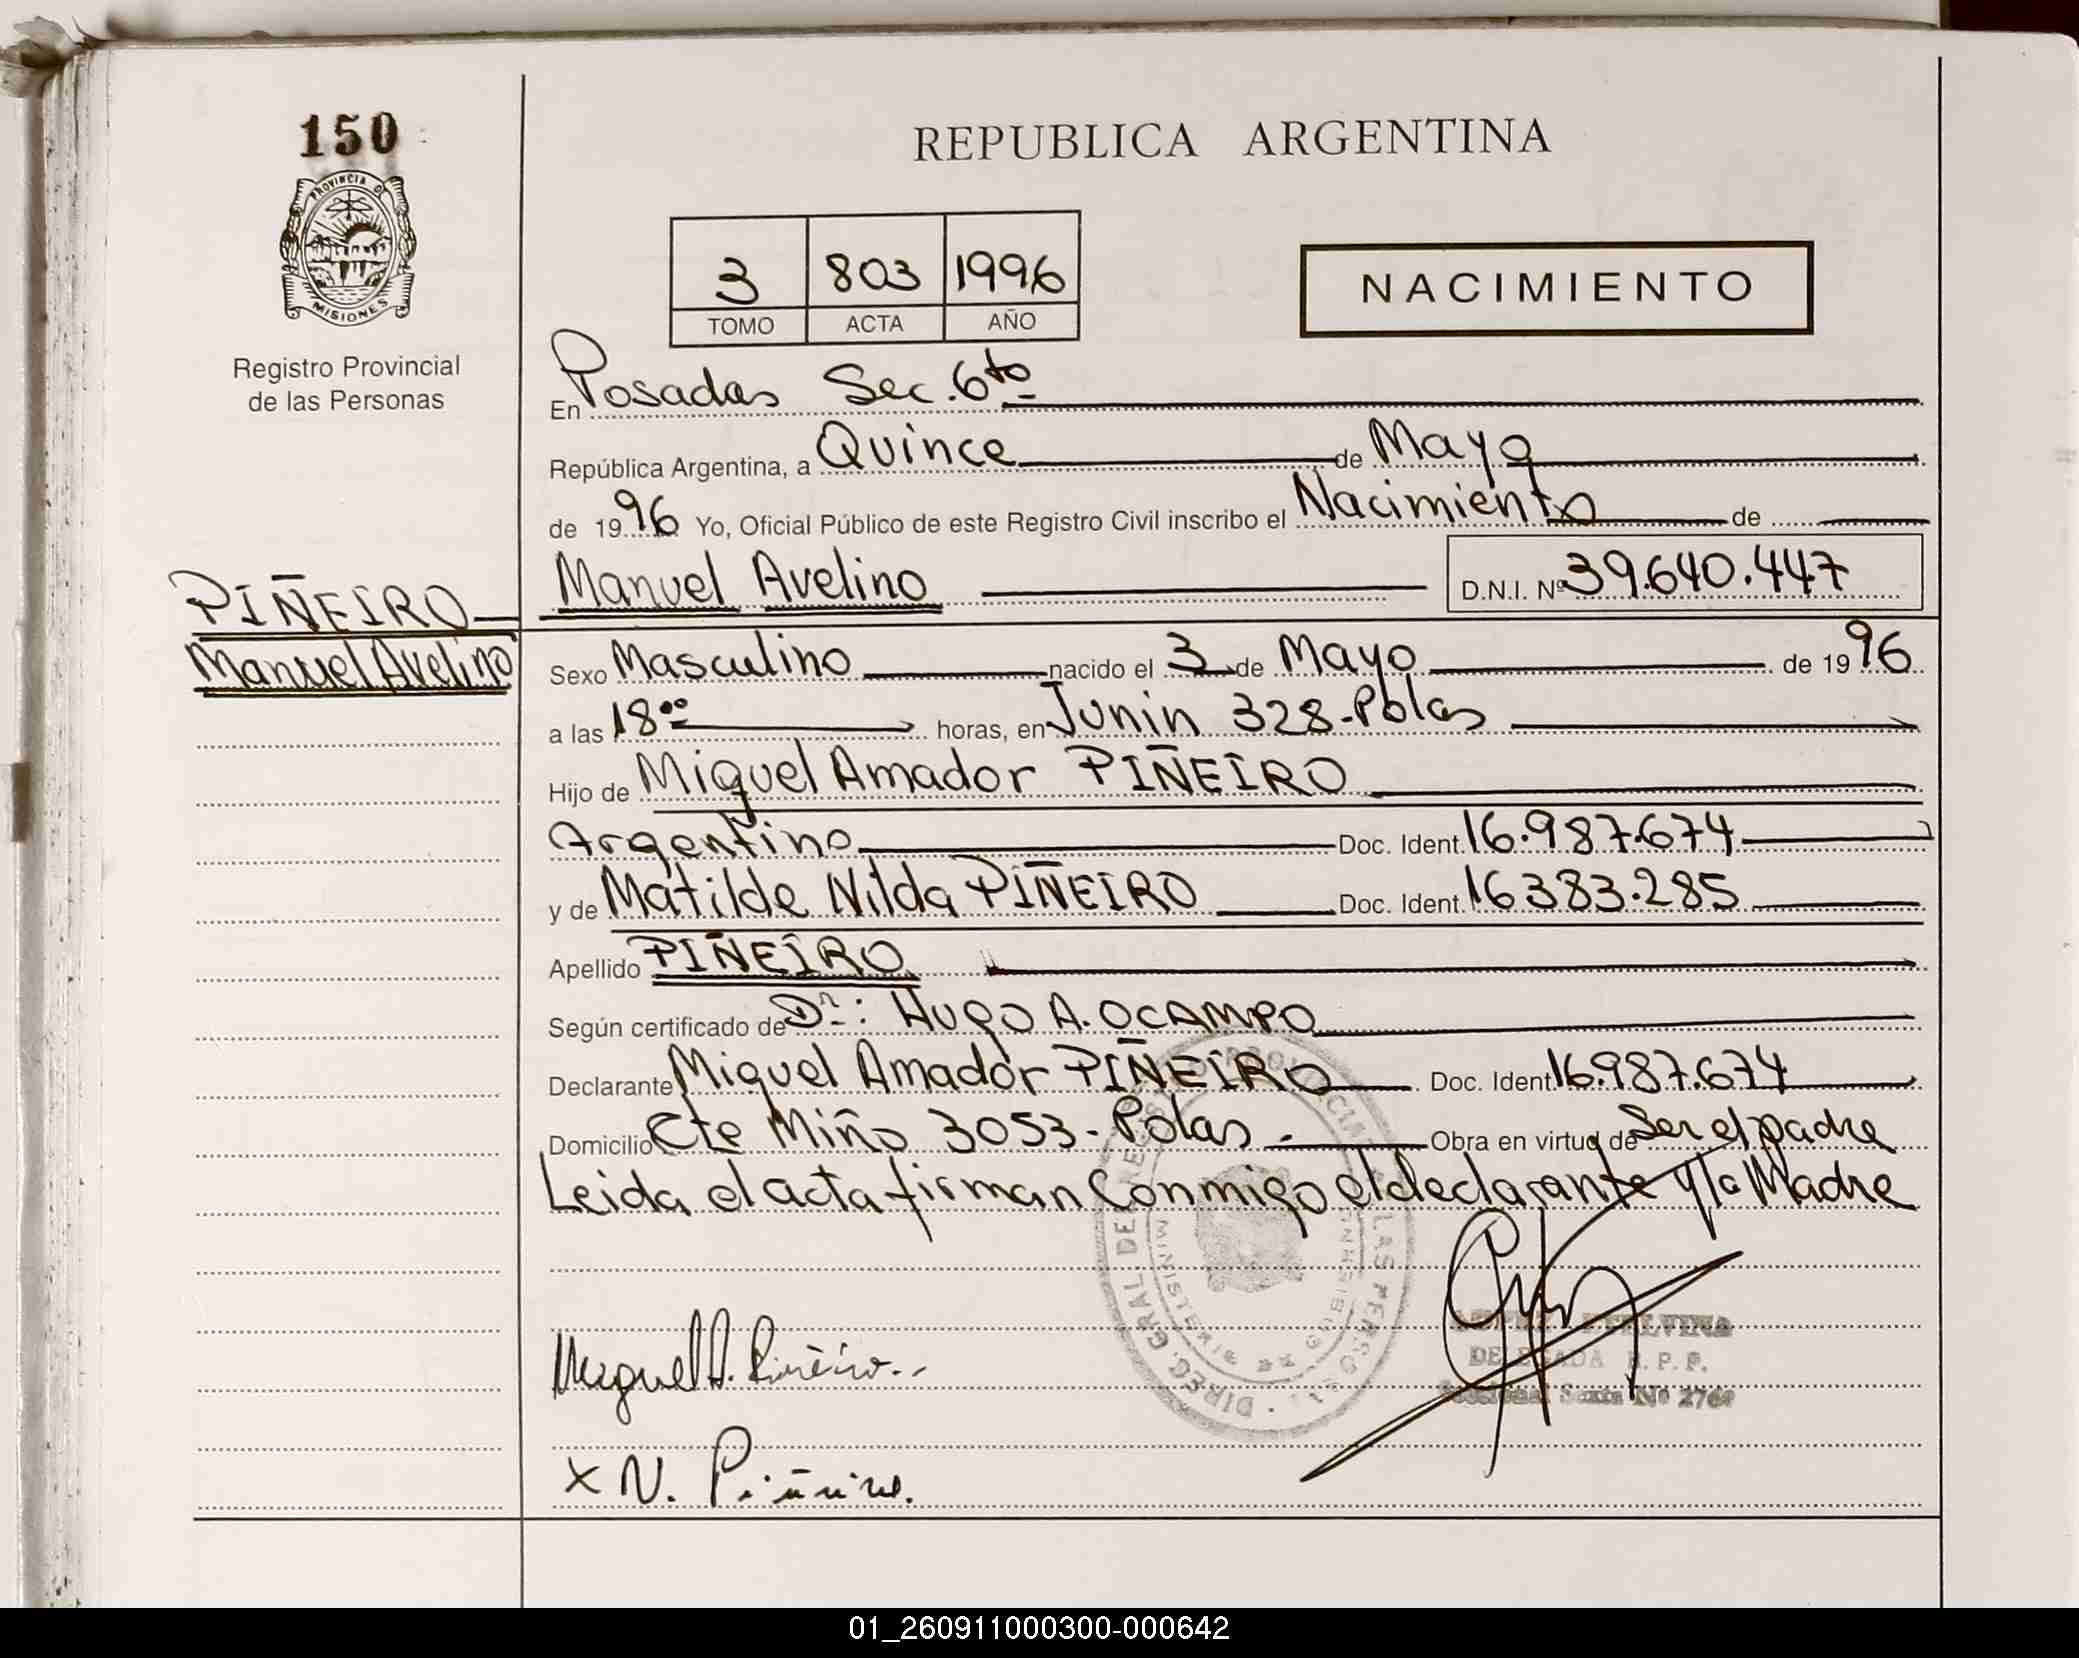 150
REPUBLICA ARGENTINA
PROVINCIA D
MISIONES
3 803 1996
TOMO ACTA AÑO
NACIMIENTO
Registro Provincial
de las Personas
En Posadas Sec. 6ta
República Argentina, a Quince de Mayo
de 1996 Yo, Oficial Público de este Registro Civil inscribo el Nacimiento de
Manuel Avelino D.N.I. Nº 39.640.447
PIÑEIRO
Manuel Avelino
Sexo Masculino nacido el 3 de Mayo de 1996
a las 18ºº horas, en Junin 328-Pdas
Hijo de Miguel Amador PIÑEIRO
Argentino Doc. Ident. 16.987.674
y de Matilde Nilda PIÑEIRO Doc. Ident. 16383.285
Apellido PIÑEIRO
Según certificado de Dr: HUGO A. OCAMPO
Declarante Miguel Amador PIÑEIRO Doc. Ident. 16.987.674
Domicilio Cte Miño 3053-Pdas- Obra en virtud de Ser el padre
Leida el acta firman Conmigo el declarante y la Madre
DIREC. GRAL DE
LAS PERSO
Miguel A. Piñeiro..
DELEGADA R. P. P.
Seccional Sexta Nº 276
x N. Piñeiro.
01_260911000300-000642